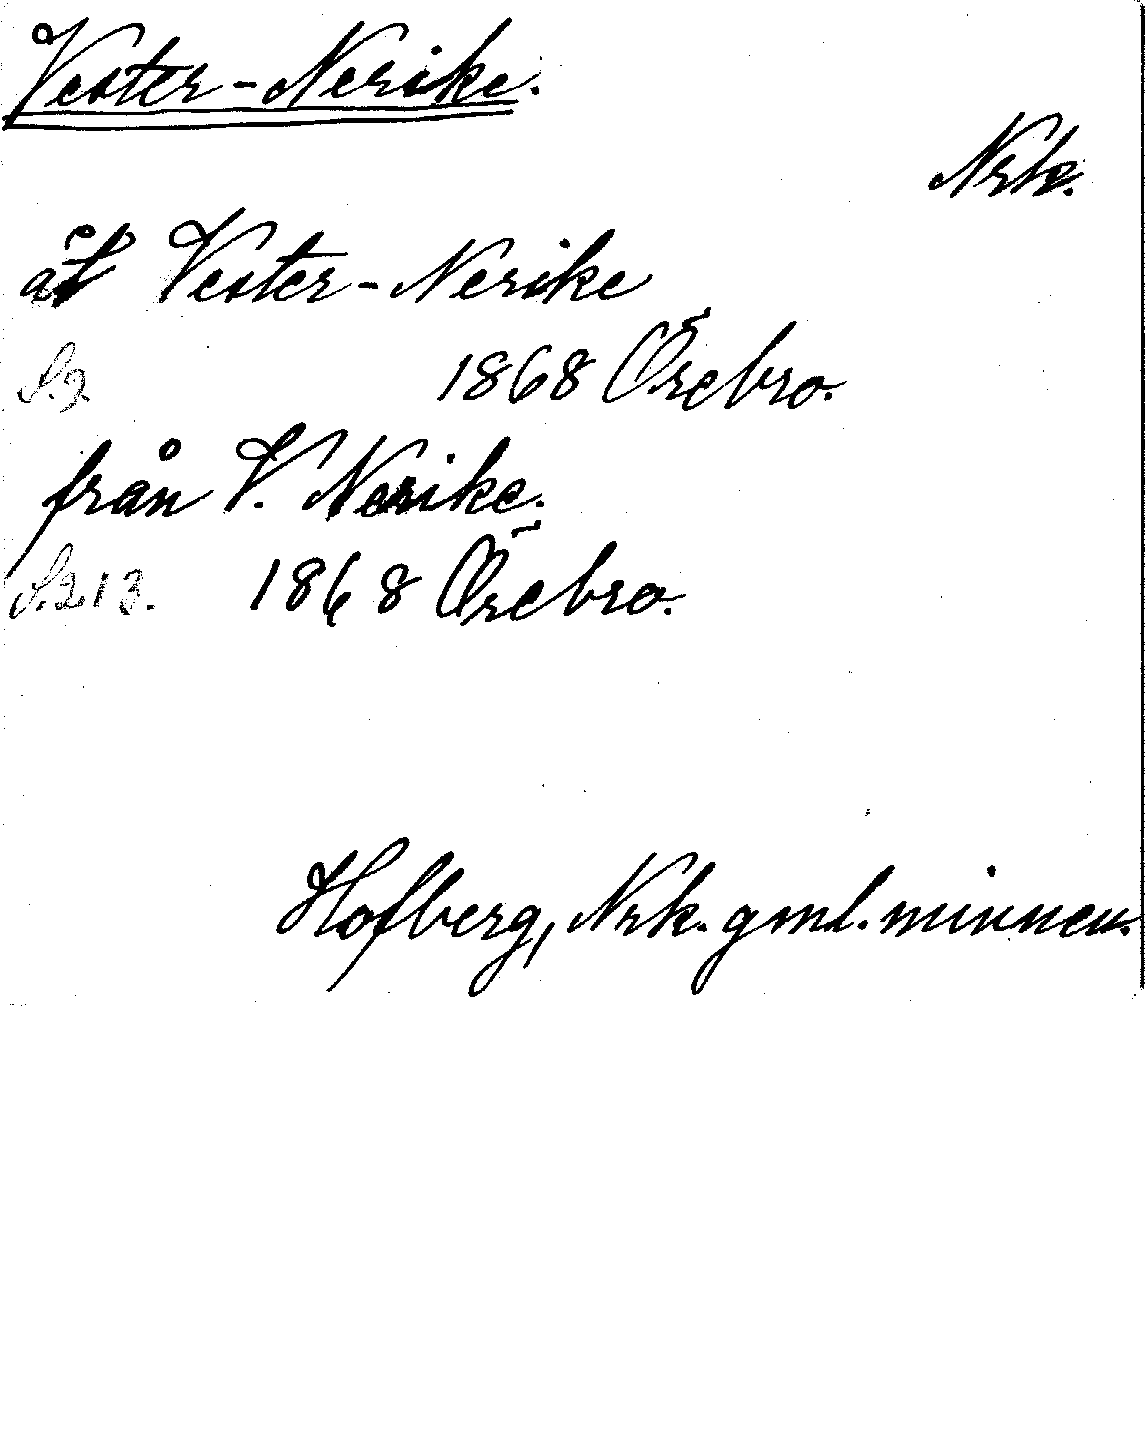 Vester-Nerike.
Nrk.
åt Vester-Nerike
S.2 1868 Örebro.
från V. Nerike.
S.213. 1868 Örebro.
Hofberg, Nrk. gml. minnen.